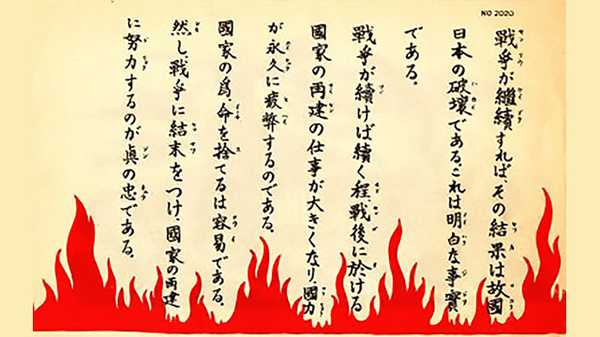 NO 2020
戰爭が繼續すれば、その結果は故國
日本の破壞である、これは明白な事實
である。
戰爭が續けば續く程、戰後に於ける
國家の再建の仕事が大きくなり、國力
が永久に疲弊するのである。
國家の爲、命を捨てるは容易である。
然し戰爭に結末をつけ、國家の再建
に努力するのが眞の忠である。